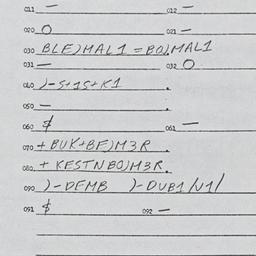 011 — 012 —
020 O 021 —
030 BLE)MAL1 = BO)MAL1
031 — 032 O
040 )-S+1S+K1
050 —
060 $ 061 —
070 + BUK+BF)M3R
080 + KESTNBO)M3R.
090 )-DEMB )-DUB1/V1/
091 $ 092 —